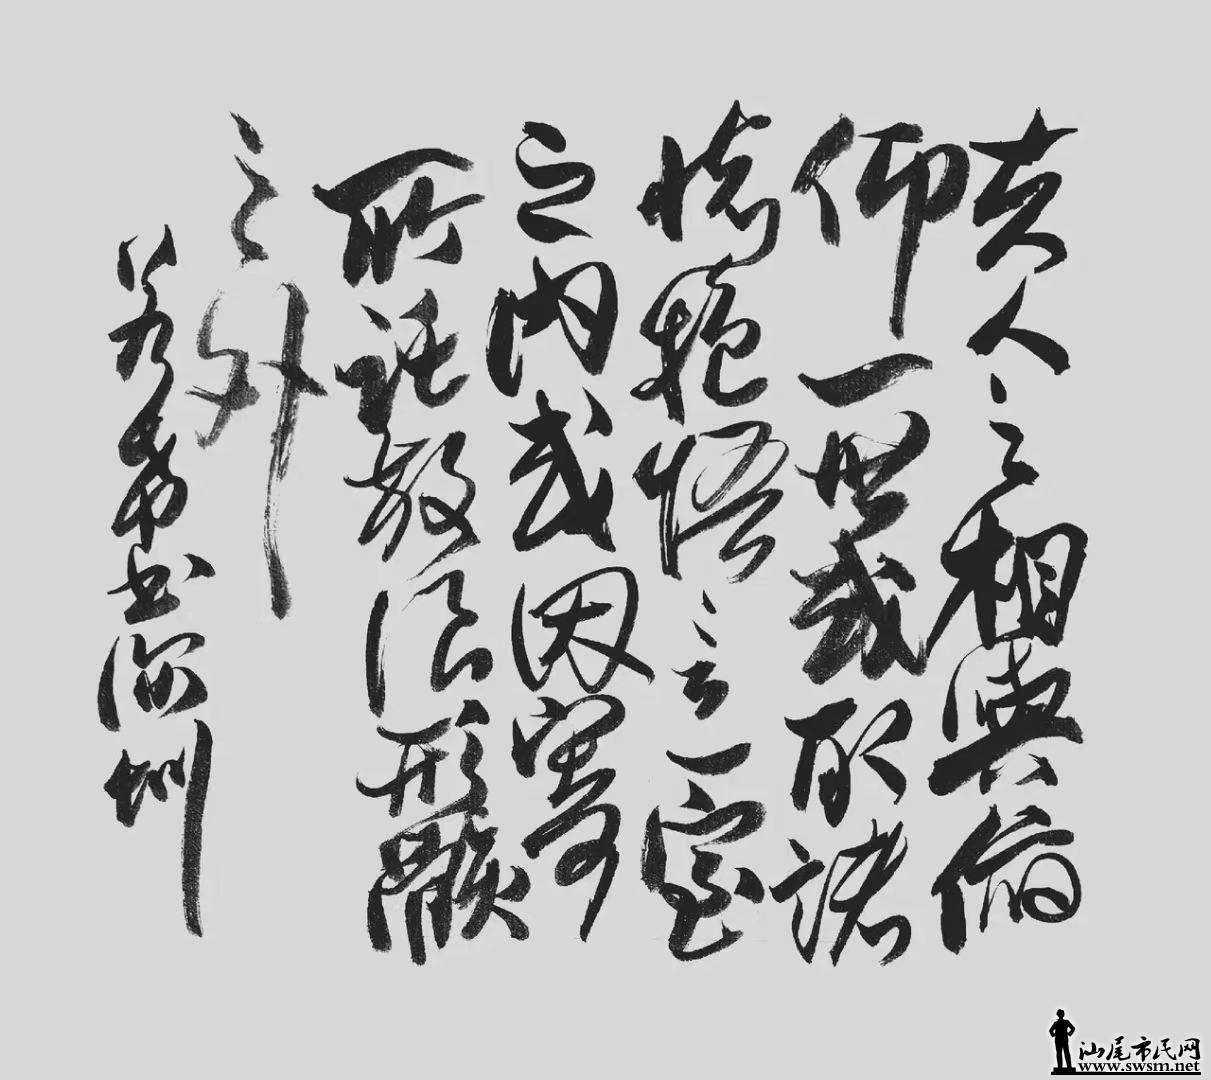 夫人之相與俯
仰一世或取諸
懷抱悟言一室
之內或因寄
所託放浪形骸
之外
书深圳
汕尾市民网
www.swsm.net